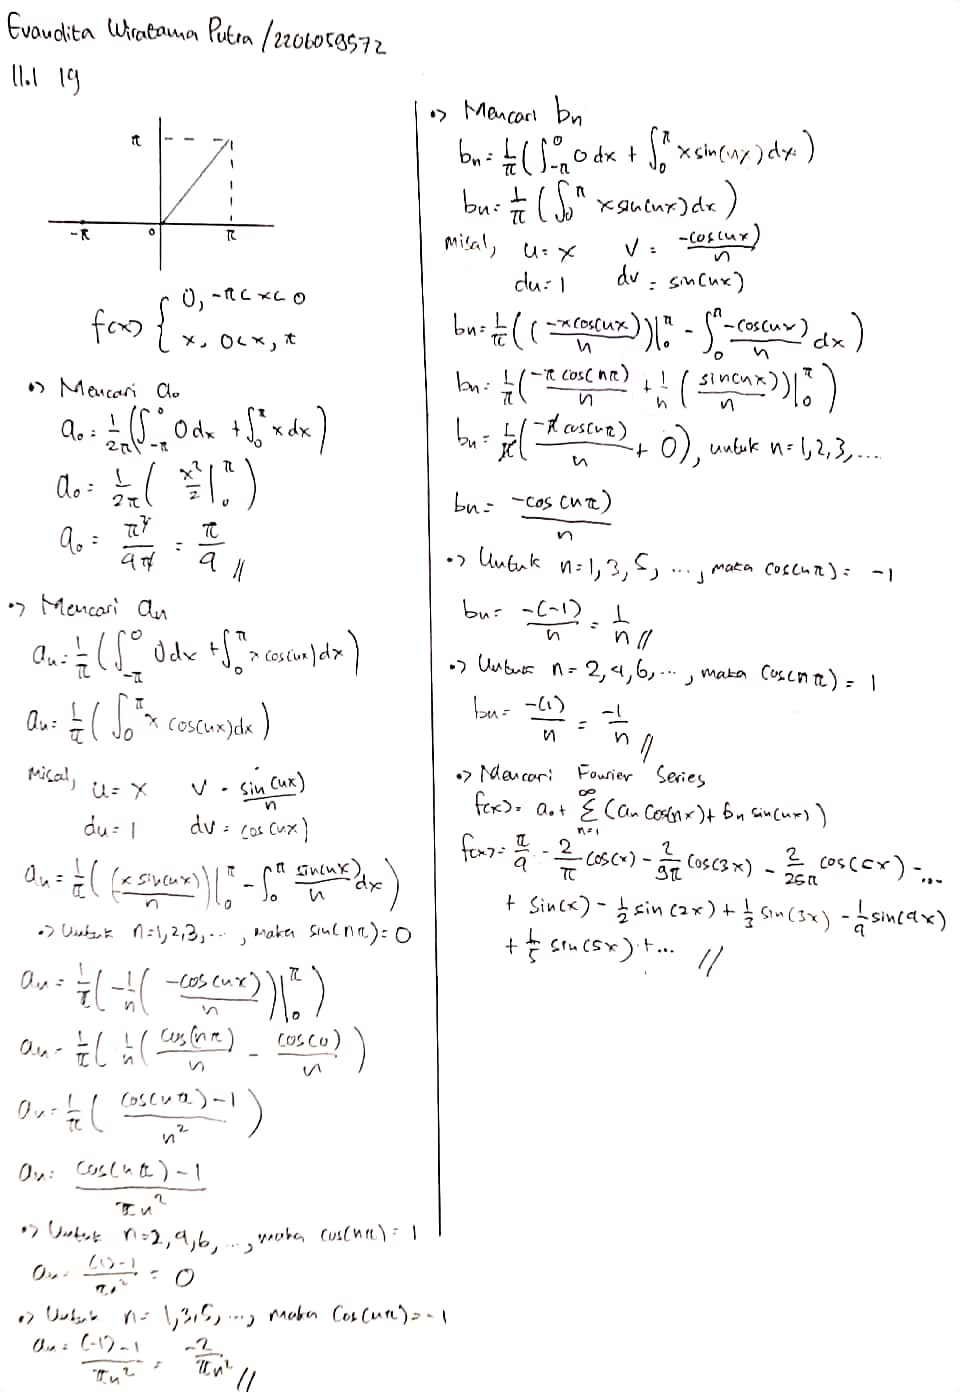 Evandita Wiratama Putra / 2206059572
11.1 19
π
-π 0 π
f(x) { 0, -π < x < 0
x, 0 < x, π
•> Mencari a₀
a₀ = 1/2π (∫_{-π}^{0} 0 dx + ∫_{0}^{π} x dx)
a₀ = 1/2π ( x²/2 |_{0}^{π} )
a₀ = π²/4π = π/4 //
•> Mencari an
an = 1/π (∫_{-π}^{0} 0 dx + ∫_{0}^{π} x cos(nx) dx)
an = 1/π (∫_{0}^{π} x cos(nx) dx)
Misal, u = x v = sin(nx)/n
du = 1 dv = cos(nx)
an = 1/π ( (x sin(nx)/n) |_{0}^{π} - ∫_{0}^{π} sin(nx)/n dx )
•> Untuk n = 1, 2, 3, ..., maka sin(nπ) = 0
an = 1/π ( -1/n ( -cos(nx)/n ) |_{0}^{π} )
an = 1/π ( 1/n ( cos(nπ)/n - cos(0)/n ) )
an = 1/π ( (cos(nπ) - 1)/n² )
an = (cos(nπ) - 1)/πn²
•> Untuk n = 2, 4, 6, ..., maka cos(nπ) = 1
an = ((1) - 1)/πn² = 0
•> Untuk n = 1, 3, 5, ..., maka cos(nπ) = -1
an = ((-1) - 1)/πn² = -2/πn² //
•> Mencari bn
bn = 1/π (∫_{-π}^{0} 0 dx + ∫_{0}^{π} x sin(nx) dx)
bn = 1/π (∫_{0}^{π} x sin(nx) dx)
Misal, u = x v = -cos(nx)/n
du = 1 dv = sin(nx)
bn = 1/π ( (-x cos(nx)/n) |_{0}^{π} - ∫_{0}^{π} -cos(nx)/n dx )
bn = 1/π ( -π cos(nπ)/n + 1/n ( sin(nx)/n ) |_{0}^{π} )
bn = 1/π ( -π cos(nπ)/n + 0 ), untuk n = 1, 2, 3, ...
bn = -cos(nπ)/n
•> Untuk n = 1, 3, 5, ..., maka cos(nπ) = -1
bn = -(-1)/n = 1/n //
•> Untuk n = 2, 4, 6, ..., maka cos(nπ) = 1
bn = -(1)/n = -1/n //
•> Mencari Fourier Series
f(x) = a₀ + Σ_{n=1}^{∞} (an cos(nx) + bn sin(nx))
f(x) = π/4 - 2/π cos(x) - 2/9π cos(3x) - 2/25π cos(5x) - ...
+ sin(x) - 1/2 sin(2x) + 1/3 sin(3x) - 1/4 sin(4x)
+ 1/5 sin(5x) + ... //